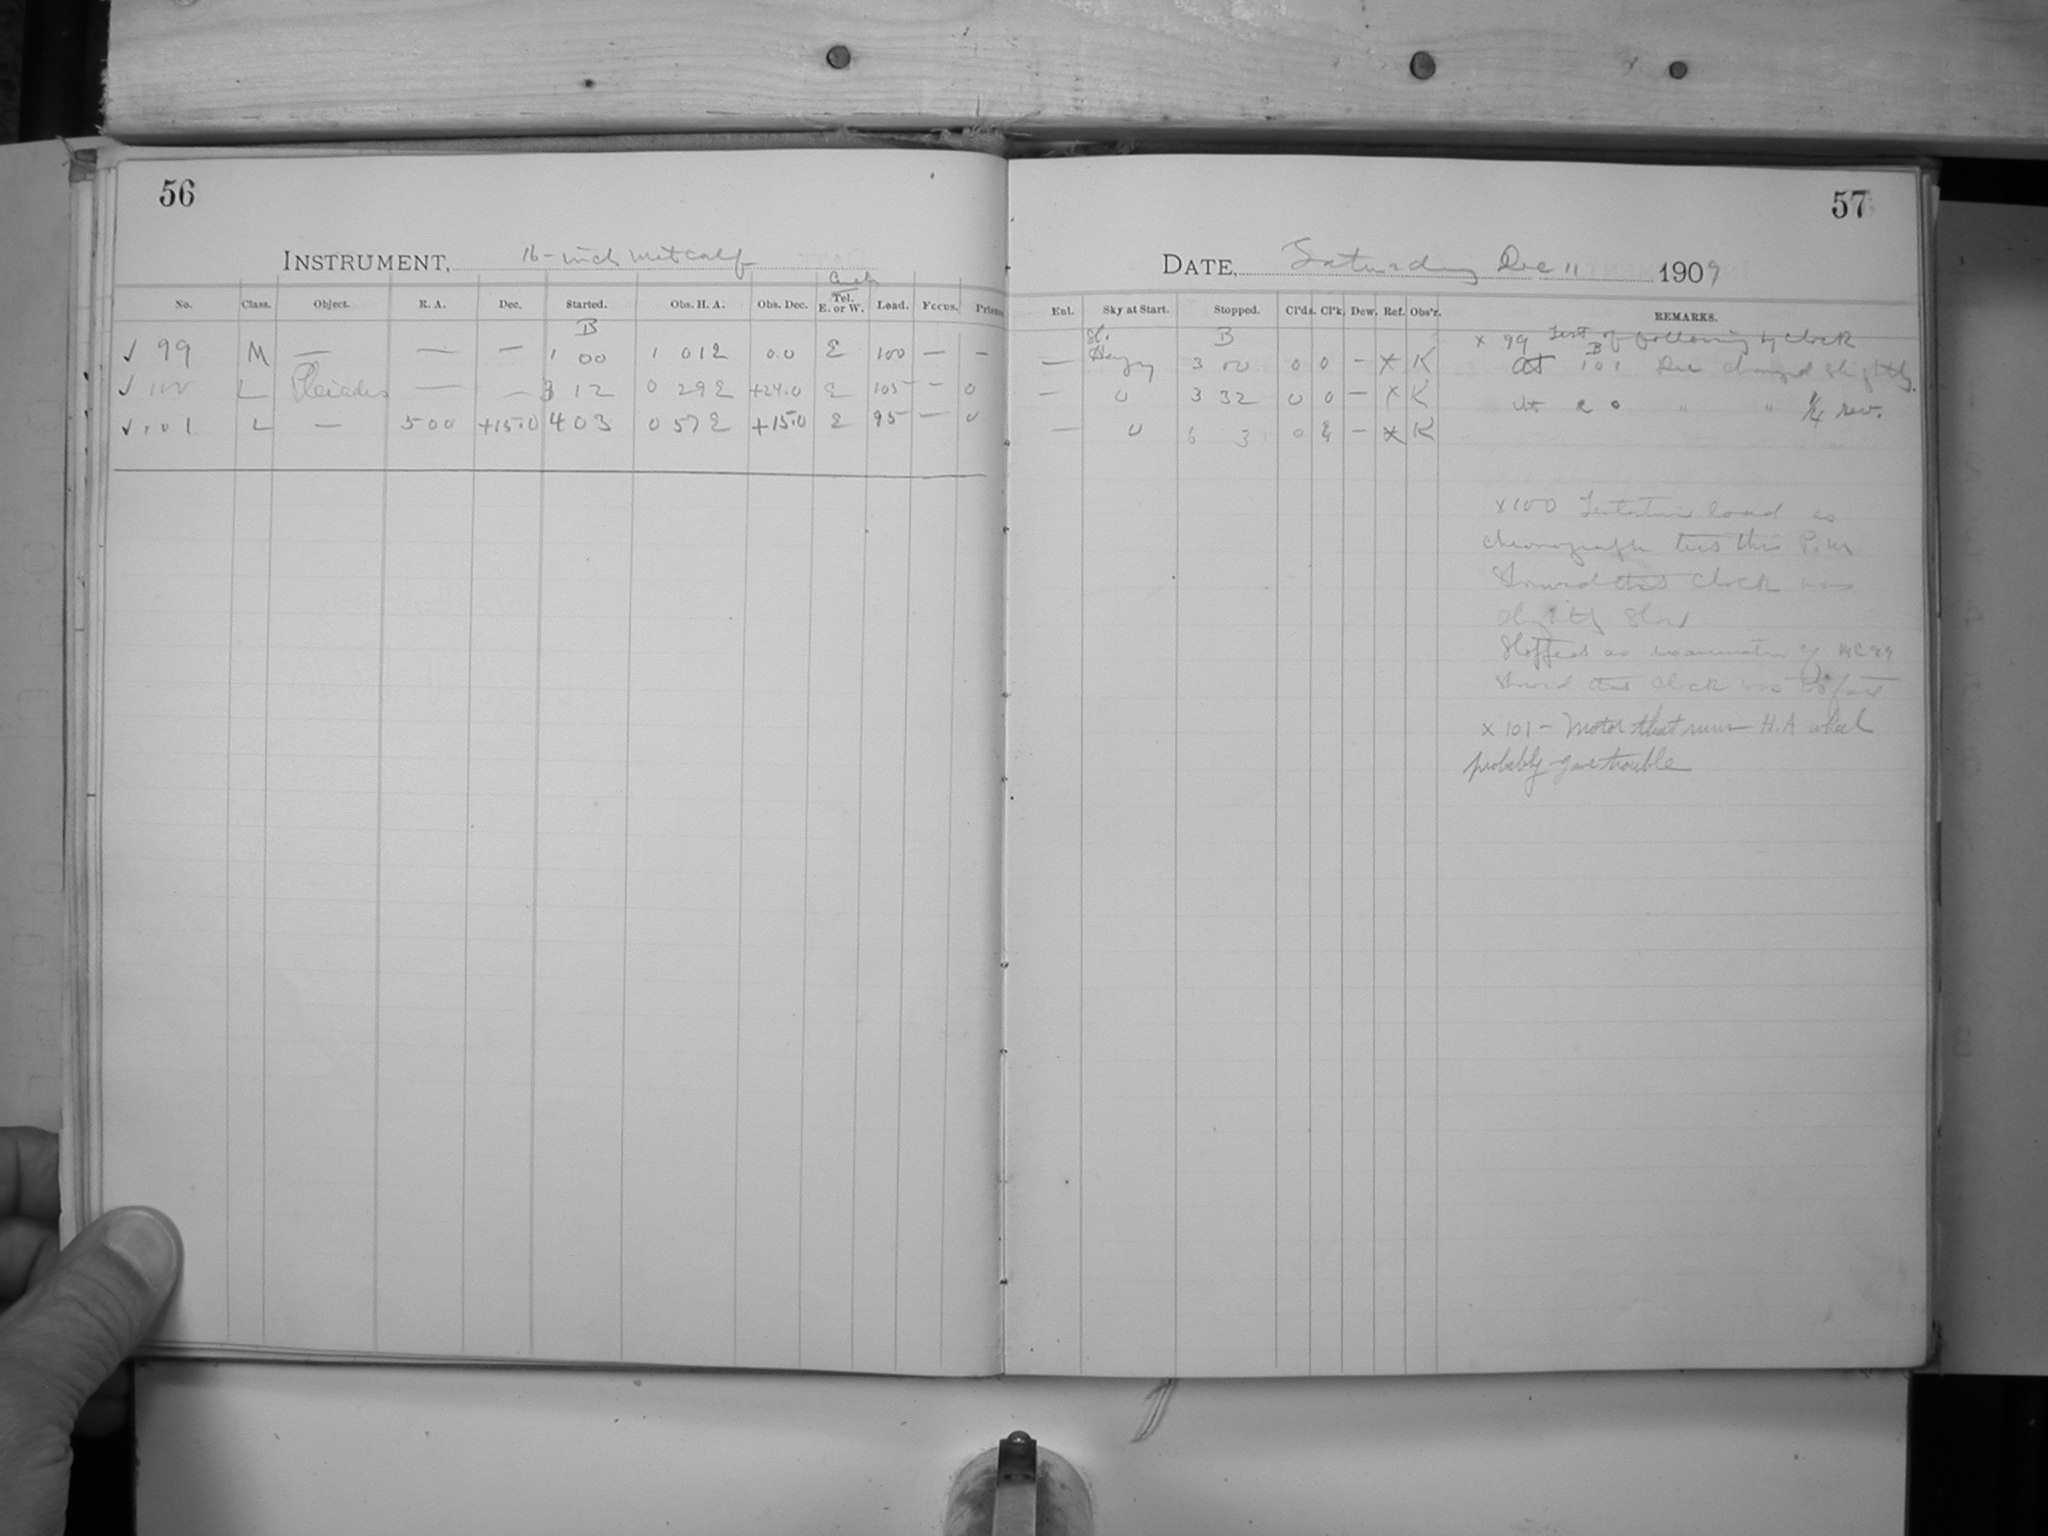 56
INSTRUMENT, 16-inch Metcalf
No. Class. Object. R. A. Dec. Started. Obs. H. A. Obs. Dec. Tel. E. or W. Load. Focus. Prisms
B
✓ 99 M — — — 1 00 1 01 E 0.0 E 100 — —
✓ 100 L Pleiades — — 3 12 0 29 E +24.0 E 105 — 0
✓ 101 L — 5 00 +15.0 4 03 0 57 E +15.0 E 95 — 0
57
DATE, Saturday Dec 11 1909
Ent. Sky at Start. Stopped. Cl'ds. Cl'k. Dew. Ref. Obs'r. REMARKS.
Sl. B
— Hazy 3 00 0 0 — x K
— 0 3 32 0 0 — x K
— 0 6 3 0 — x K
x 99 Test of following by clock
B
At 101 Dec changed slightly.
At 2 0 " " 1/4 rev.
x 100 Tentative load as
chronograph test this P.M.
showed that clock was
slightly slow
Stopped as examination of MC 99
showed that clock was too fast
x 101 — Motor that runs H.A wheel
probably gave trouble